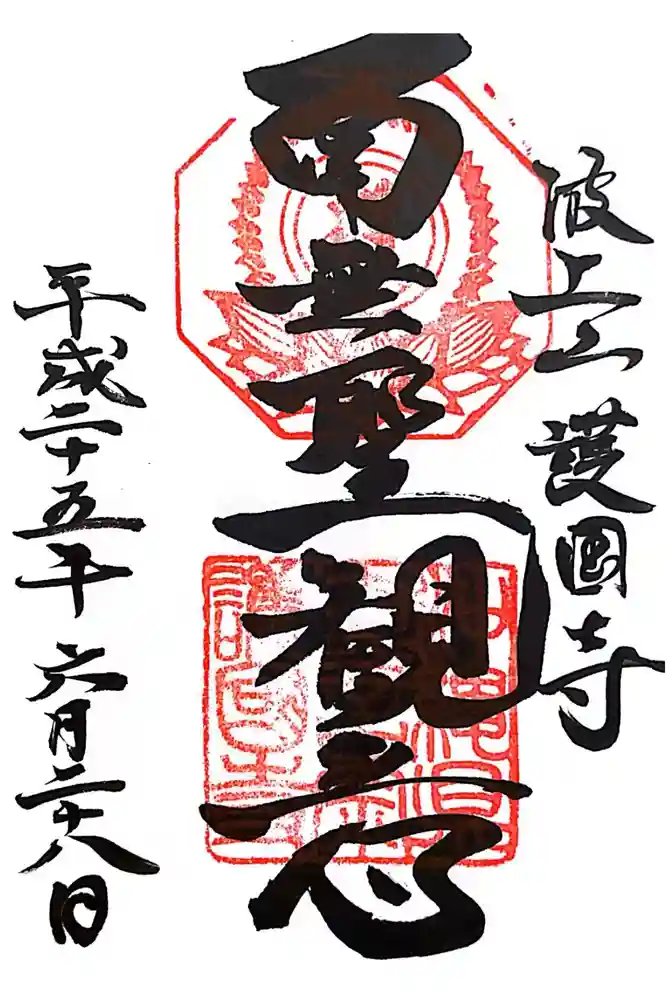 波上山 護國寺
南無聖観音
平成二十五年 六月二十八日